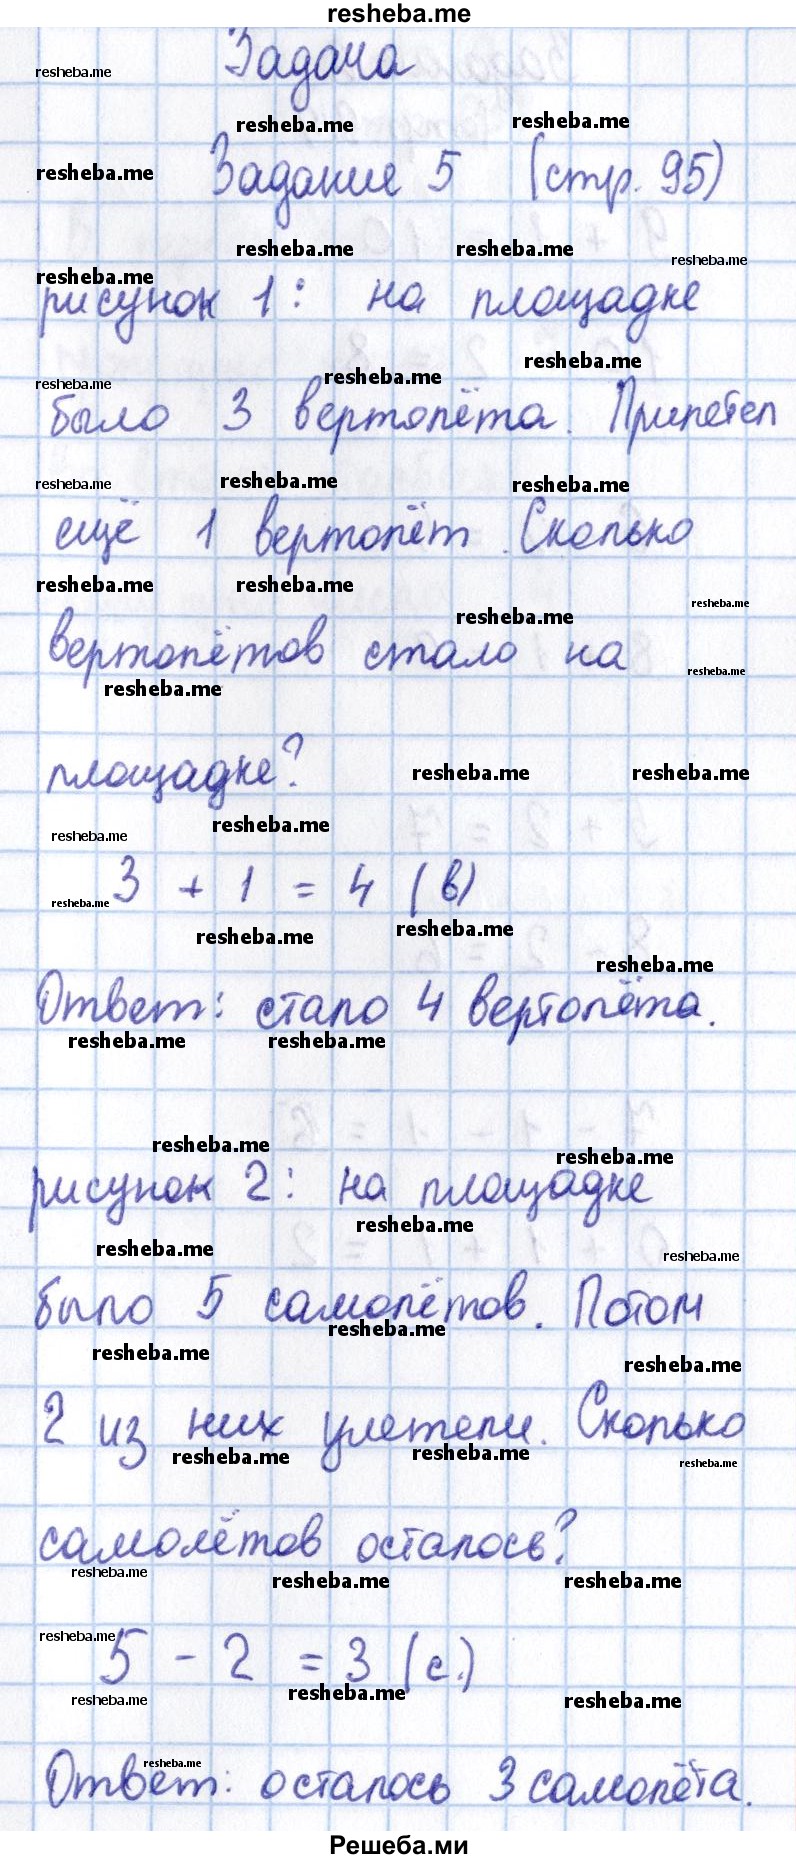 resheba.me
Задача
Задание 5 (стр. 95)
рисунок 1: на площадке
было 3 вертолёта. Прилетел
ещё 1 вертолёт. Сколько
вертолётов стало на
площадке?
3 + 1 = 4 (в)
Ответ: стало 4 вертолёта.
рисунок 2: на площадке
было 5 самолётов. Потом
2 из них улетели. Сколько
самолётов осталось?
5 - 2 = 3 (с.)
Ответ: осталось 3 самолёта.
Решеба.ми